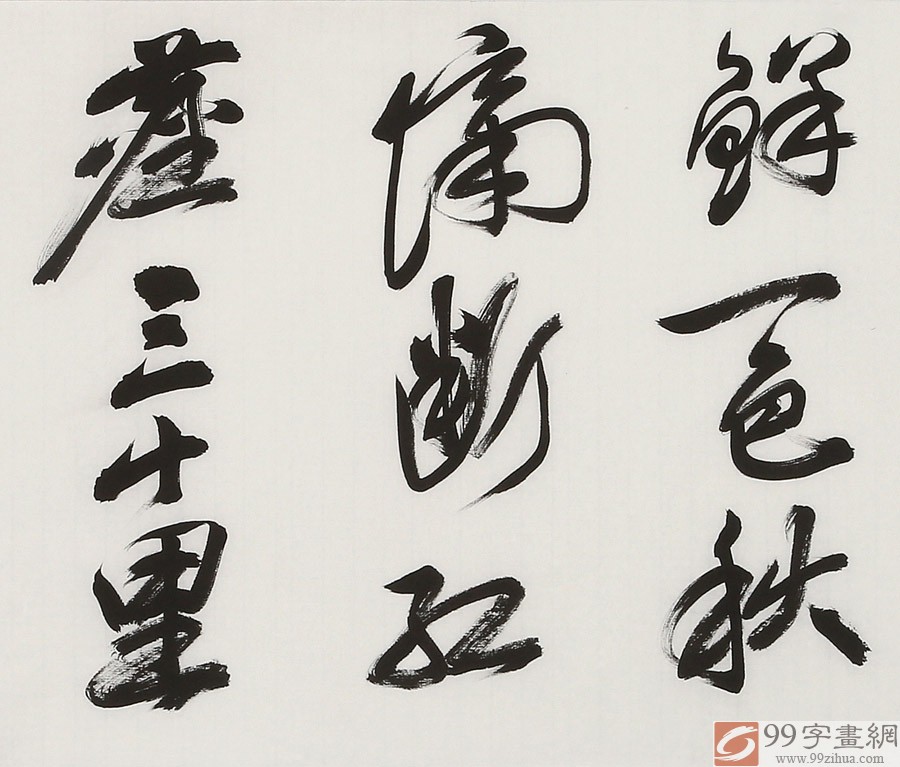 鲜一色秋
断红
三十里
99字畫網
www.99zihua.com